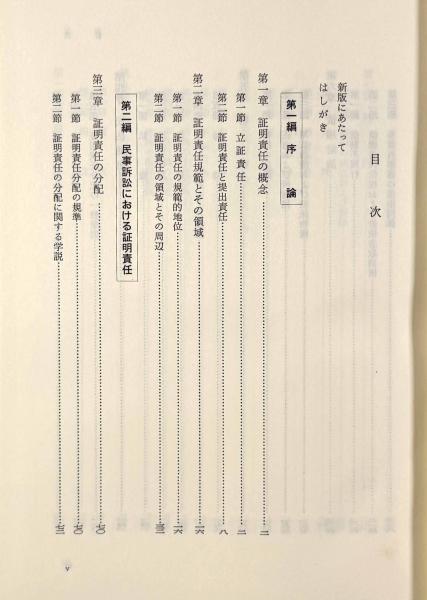 目次
新版にあたって
はしがき
第一編 序論
第一章 証明責任の概念……二
第一節 立証責任……二
第二節 証明責任と提出責任……八
第二章 証明責任規範とその領域……一六
第一節 証明責任の規範的地位……一六
第二節 証明責任の領域とその周辺
第二編 民事訴訟における証明責任
第三章 証明責任の分配……七〇
第一節 証明責任分配の規準……七〇
第二節 証明責任の分配に関する学説
v